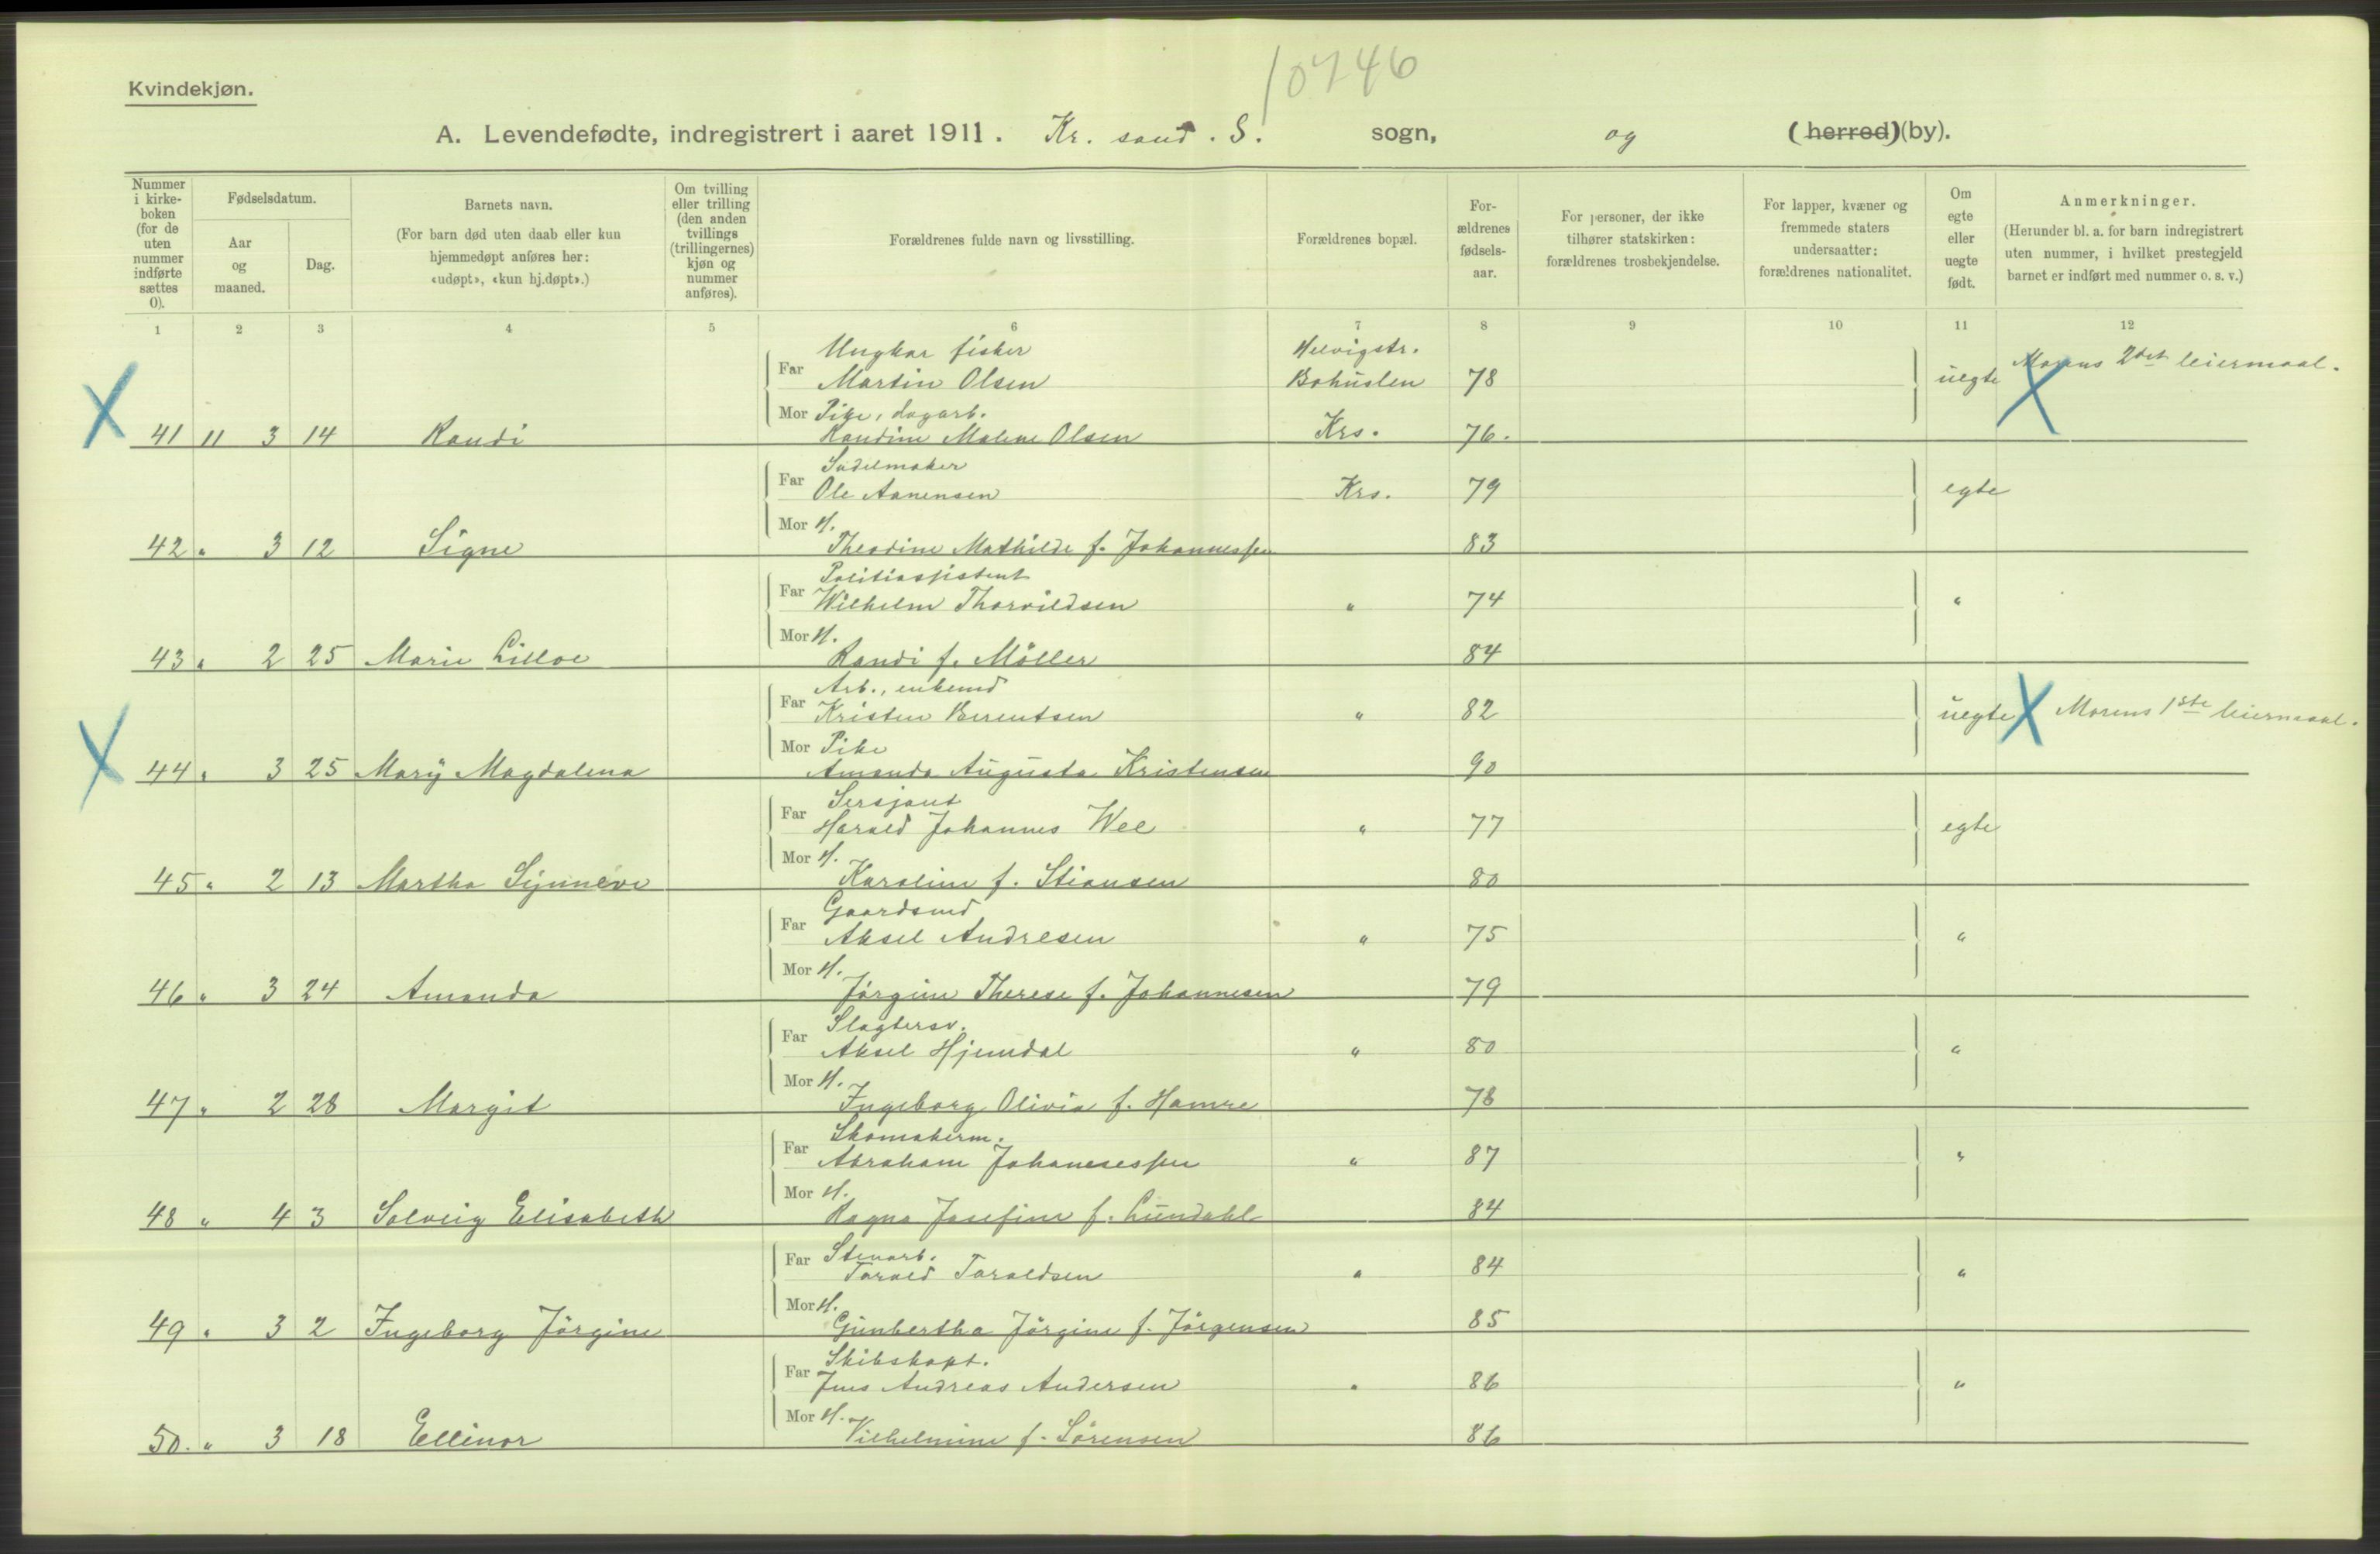 10746
Kvindekjøn.
A. Levendefødte, indregistrert i aaret 1911. Kr. sand. S. sogn, og (herred)(by).
Nummer i kirkeboken (for de uten nummer indførte sættes 0).
Fødselsdatum.
Aar og maaned.
Dag.
Barnets navn.
(For barn død uten daab eller kun hjemmedøpt anføres her: «udøpt», «kun hj.døpt».)
Om tvilling eller trilling (den anden tvillings (trillingernes) kjøn og nummer anføres).
Forældrenes fulde navn og livsstilling.
Forældrenes bopæl.
Forældrenes fødselsaar.
For personer, der ikke tilhører statskirken: forældrenes trosbekjendelse.
For lapper, kvæner og fremmede staters undersaatter: forældrenes nationalitet.
Om egte eller uegte født.
Anmerkninger.
(Herunder bl. a. for barn indregistrert uten nummer, i hvilket prestegjeld barnet er indført med nummer o. s. v.)
1 2 3 4 5 6 7 8 9 10 11 12
Ungkar fisker
Far Martin Olsen Bohuslen 78 uegte Morens 2det leiermaal.
Mor Pike, dagarb.
X 41 11 3 14 Randi Randine Malene Olsen Krs. 76. X
Sadelmaker
Far Ole Aanensen Krs. 79 egte
Mor H.
42 " 3 12 Signe Theodine Mathilde f. Johannessen 83
Politiassistent
Far Wilhelm Thorvildsen " 74 "
Mor H.
43 " 2 25 Marie Lilloe Randi f. Møller 84
Arb., enkemd
Far Kristen Berentsen " 82 uegte X Morens 1ste leiermaal.
Mor Pike
X 44 " 3 25 Mary Magdalena Amanda Augusta Kristensen 90
Sersjant
Far Harald Johannes Wee " 77 egte
Mor H.
45 " 2 13 Martha Synneve Karoline f. Stiansen 80
Gaardsmd
Far Aksel Andresen " 75 "
Mor H.
46 " 3 24 Amanda Jørgine Therese f. Johannesen 79
Slagtersv.
Far Aksel Hjemdal " 80 "
Mor H.
47 " 2 28 Margit Ingeborg Olivia f. Hamre 78
Skomakerm.
Far Abraham Johannessen " 87 "
Mor H.
48 " 4 3 Solveig Elisabeth Ragna Josefine f. Lundahl 84
Far Stenarb.
Tarald Taraldsen " 84 "
Mor H.
49 " 3 2 Ingeborg Jørgine Gunbertha Jørgine f. Jørgensen 85
Skibskapt.
Far Jens Andreas Andersen " 86 "
Mor H.
50. " 3 18 Ellinor Vilhelmine f. Sørensen 86